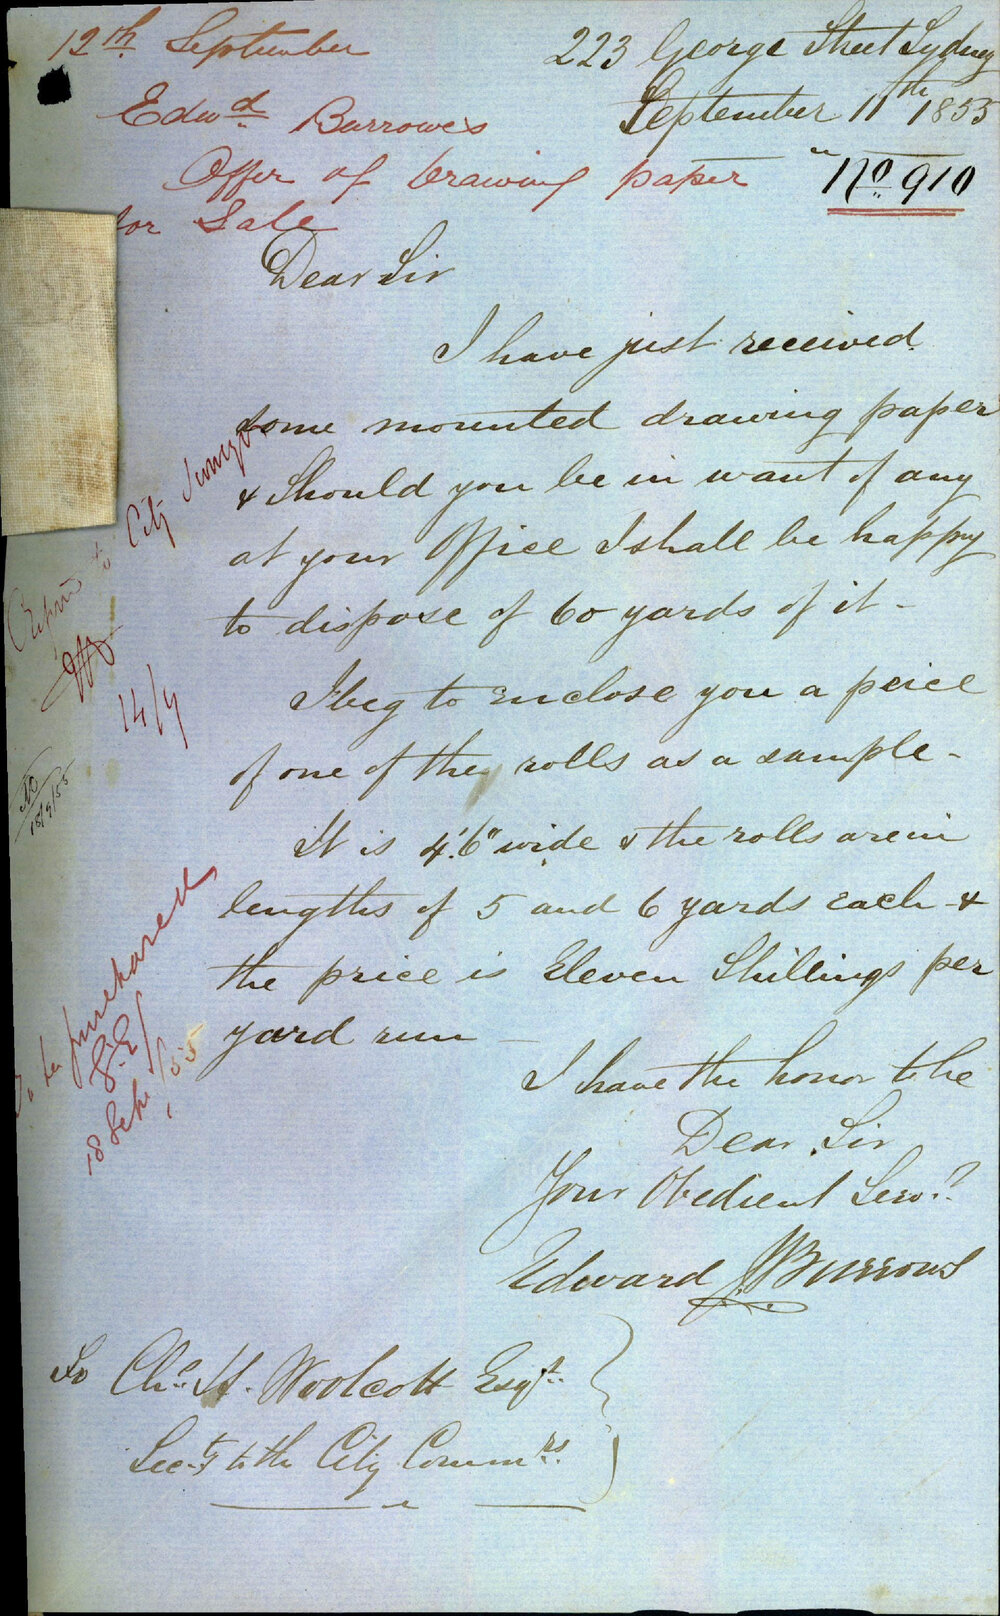 12th September
Edwd. Burrowes
Offer of Drawing paper
for Sale
223 George Street Sydney
September 11th 1855
No 910
Dear Sir
I have just received
some mounted drawing paper
& Should you be in want of any
at your Office I shall be happy
to dispose of 60 yards of it -
I beg to enclose you a peice
of one of the rolls as a sample -
It is 4'.6" wide & the rolls are in
lengths of 5 and 6 yards each - &
the price is Eleven Shillings per
yard run -
I have the honor to be
Dear Sir
Your Obedient Servt.
Edward J Burrows
To Chs. H. Woolcott Esqr.
Secty to the City Commrs.
to City Surveyor
14/9
18/9/55
To be purchased
18 Sept /55